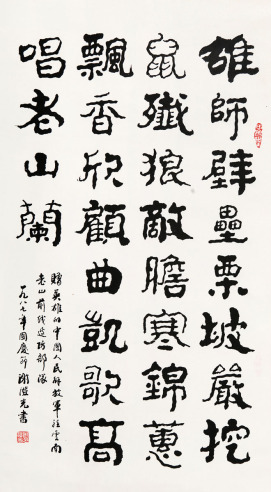 雄師壁壘栗坡嚴挖
鼠殲狼敵膽寒錦蕙
飄香欣顧曲凱歌高
唱老山蘭
贈英雄的中國人民解放軍駐雲南
老山前线造坊部隊
一九八七年國慶節 謝澄光書